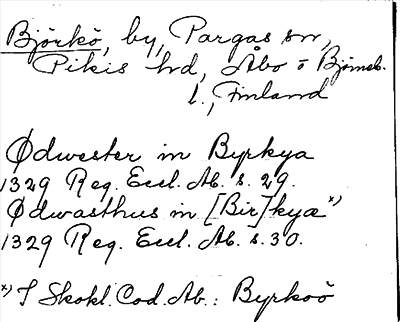 Björkö, by, Pargas sn,
Pikis hd, Åbo o Björneb.
l., Finland
Ødwester in Byrkya
1329 Reg. Eccl. Ab. s. 29.
Ødwasthus in [Bir]kyæ x)
1329 Reg. Eccl. Ab. s. 30.
x) I Skokl. Cod. Ab.: Byrkoö